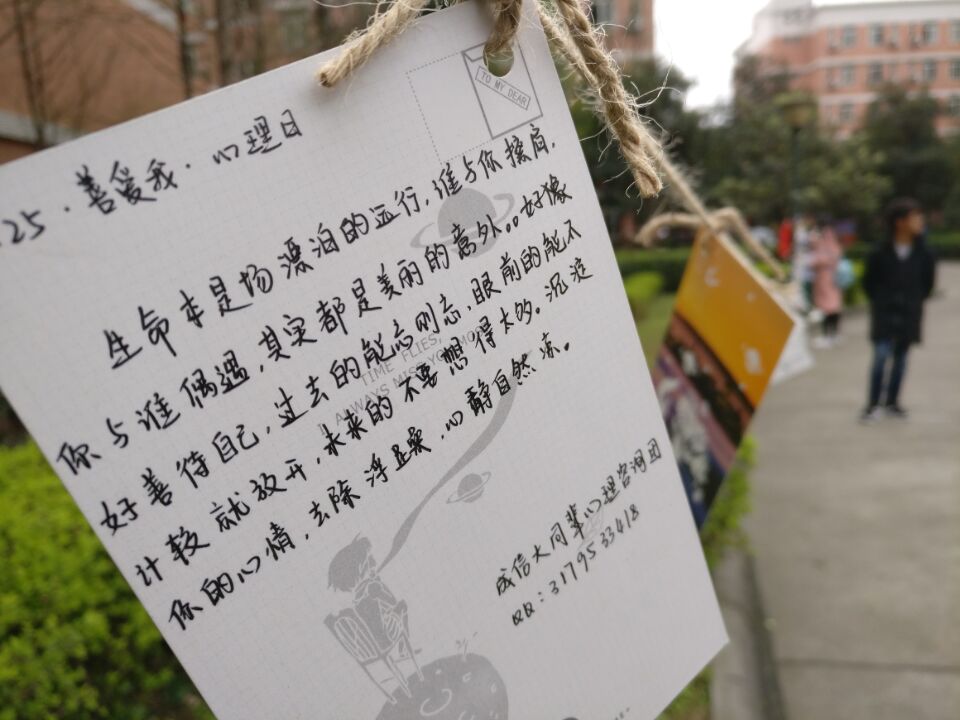 .25·善爱我·心理日
TO MY DEAR
生命本是场漂泊的运行,谁与你擦肩,
你与谁偶遇,其实都是美丽的意外。。好像
好善待自己,过去的能忘则忘,眼前的能不
计较就放开,未来的不要想得太多。沉淀
你的心情,去除浮躁,心静自然凉。
TIME FLIES,
I ALWAYS MISS YOU MO
成信大同辈心理咨询团
QQ:3179533418